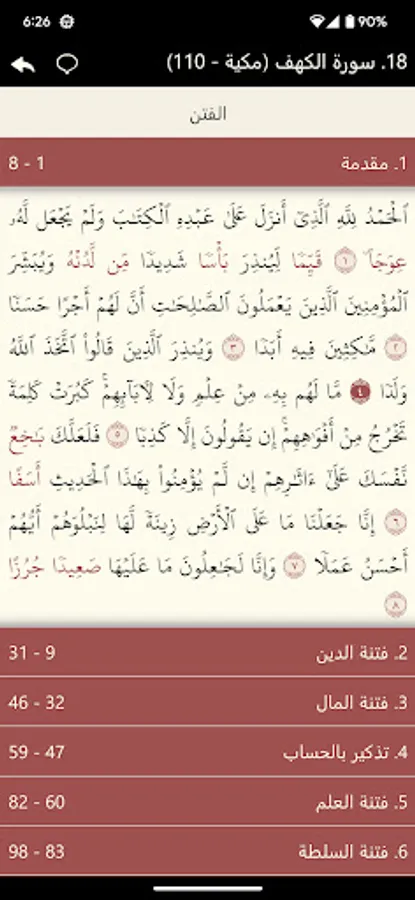 6:26
90%
18. سورة الكهف (مكية - 110)
الفتن
1. مقدمة 1 - 8
ٱلْحَمْدُ لِلَّهِ ٱلَّذِىٓ أَنزَلَ عَلَىٰ عَبْدِهِ ٱلْكِتَـٰبَ وَلَمْ يَجْعَل لَّهُۥ
عِوَجَاۜ ١ قَيِّمًا لِّيُنذِرَ بَأْسًا شَدِيدًا مِّن لَّدُنْهُ وَيُبَشِّرَ
ٱلْمُؤْمِنِينَ ٱلَّذِينَ يَعْمَلُونَ ٱلصَّـٰلِحَـٰتِ أَنَّ لَهُمْ أَجْرًا حَسَنًا
٢ مَّـٰكِثِينَ فِيهِ أَبَدًا ٣ وَيُنذِرَ ٱلَّذِينَ قَالُوا۟ ٱتَّخَذَ ٱللَّهُ
وَلَدًا ٤ مَّا لَهُم بِهِۦ مِنْ عِلْمٍ وَلَا لِـَٔابَآئِهِمْ ۚ كَبُرَتْ كَلِمَةً
تَخْرُجُ مِنْ أَفْوَٰهِهِمْ ۚ إِن يَقُولُونَ إِلَّا كَذِبًا ٥ فَلَعَلَّكَ بَـٰخِعٌ
نَّفْسَكَ عَلَىٰٓ ءَاثَـٰرِهِمْ إِن لَّمْ يُؤْمِنُوا۟ بِهَـٰذَا ٱلْحَدِيثِ أَسَفًا
٦ إِنَّا جَعَلْنَا مَا عَلَى ٱلْأَرْضِ زِينَةً لَّهَا لِنَبْلُوَهُمْ أَيُّهُمْ
أَحْسَنُ عَمَلًا ٧ وَإِنَّا لَجَـٰعِلُونَ مَا عَلَيْهَا صَعِيدًا جُرُزًا
٨
2. فتنة الدين 9 - 31
3. فتنة المال 32 - 46
4. تذكير بالحساب 47 - 59
5. فتنة العلم 60 - 82
6. فتنة السلطة 83 - 98